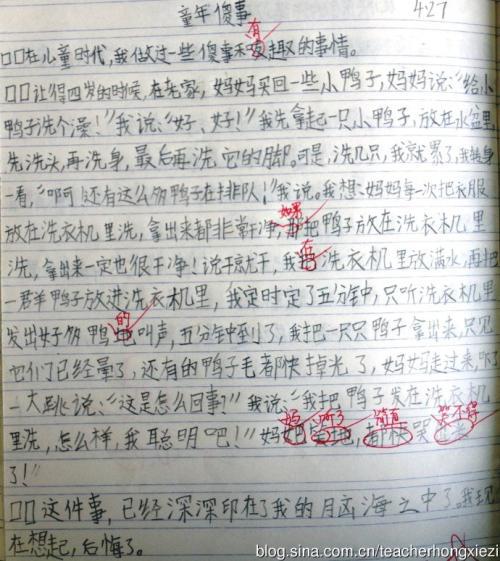 童年傻事 4.27
有
□□在儿童时代,我做过一些傻事和有趣的事情。
□□记得四岁的时候,在老家,妈妈买回一些小鸭子,妈妈说:“给小
鸭子洗个澡!”我说:“好、好!”我先拿起一只小鸭子,放在水盆里,
先洗头,再洗身,最后再洗它的脚。可是,洗几只,我就累了,我转身
一看,“啊 还有这么多鸭子在排队!”我说。我想:妈妈每次把衣服
如果
放在洗衣机里洗,拿出来都非常干净,那把鸭子放在洗衣机里
洗,拿出来一定也很干净!说干就干,我在洗衣机里放满水,再把
一群鸭子放进洗衣机里,我定时定了五分钟,只听洗衣机里
的
发出好多鸭子叫声,五分钟到了,我把一只只鸭子拿出来,只见
它们已经晕了,还有的鸭子毛都快掉光了,妈妈走过来,吓了
一大跳说:“这是怎么回事?”我说:“我把鸭子发在洗衣机
妈 听了 简直 哭不得
里洗,怎么样,我聪明吧!”妈 都快哭
了!”
□□这件事,已经深深印在了我的脑海之中了。我现
在想起,后悔了。
blog.sina.com.cn/teacherhongxiezi